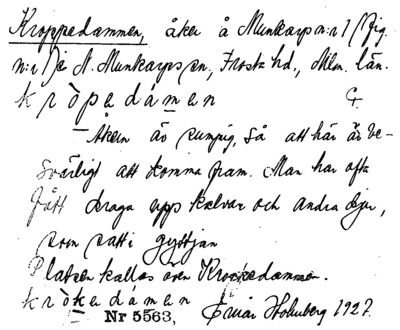 Kroppedammen, åker å Munkarps n:r 1 (Fig.
n:r 1) i N. Munkarps sn, Frosta hd., Mlm. län.
k r ò p e d á m e n
Åkern är sumpig, så att här är be-
svärligt att komma fram. Man har ofta
fått draga upp kalvar och andra djur,
som satt i gyttjan
Platsen kallas även Krockedammen.
k r ò k e d á m e n Holmberg 1927.
Nr 5563,